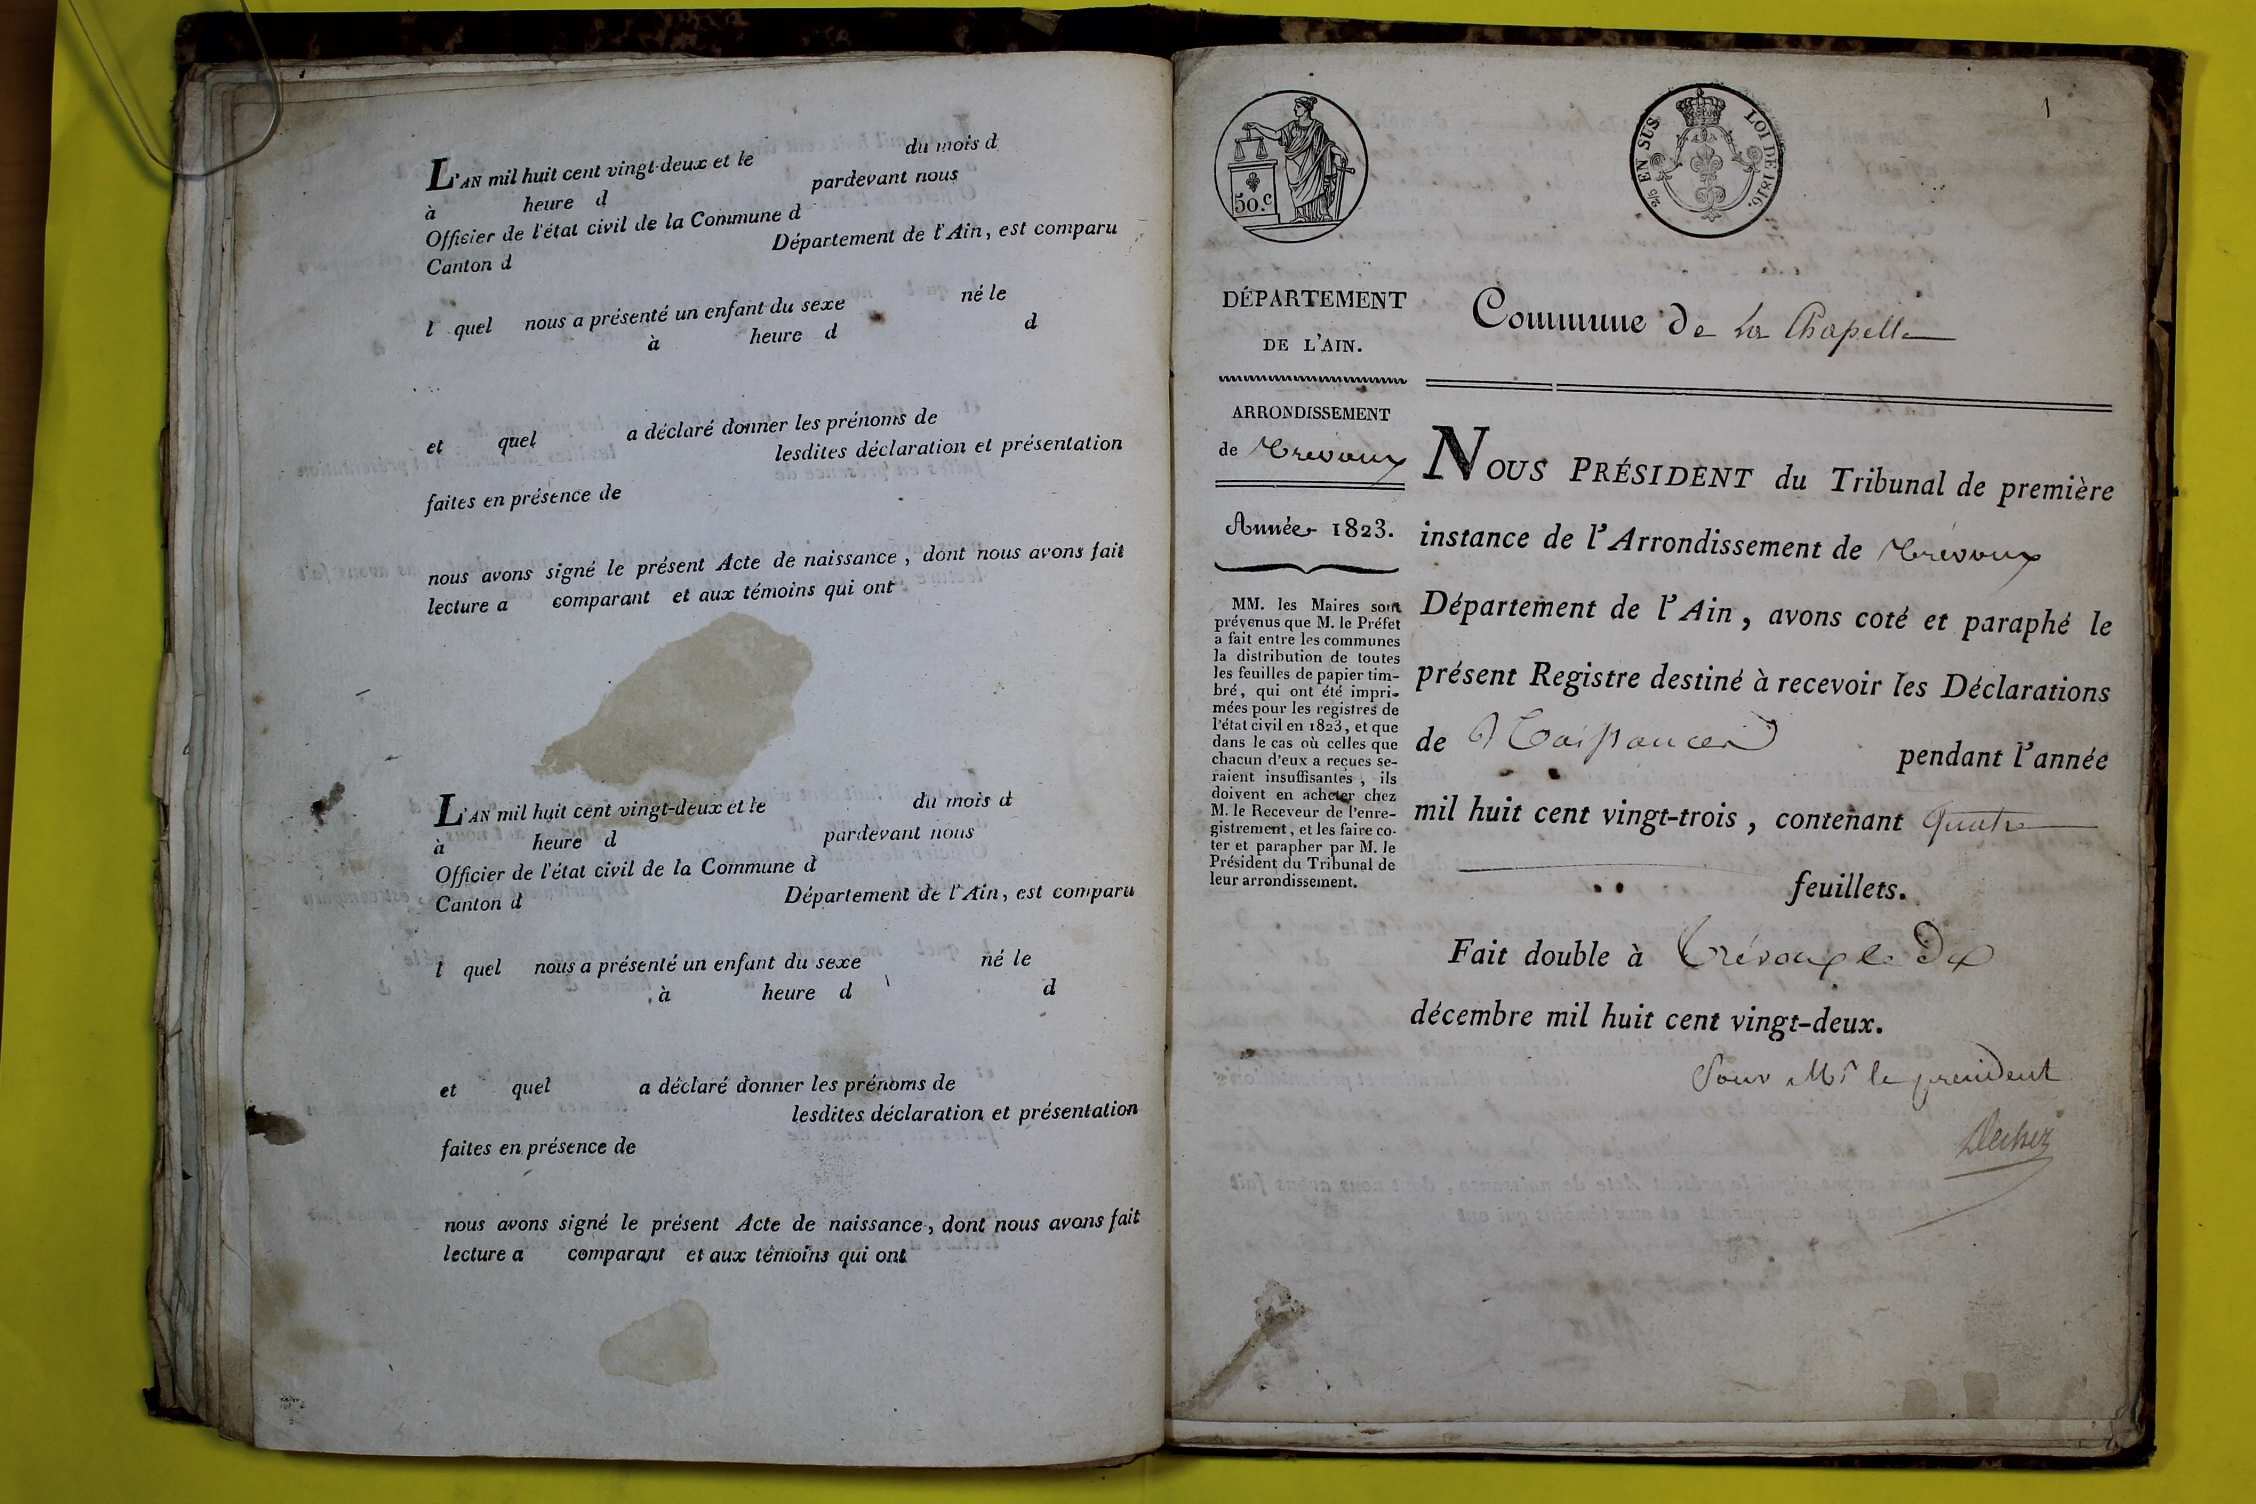 L'AN mil huit cent vingt-deux et le du mois d
à heure d pardevant nous
Officier de l'état civil de la Commune d
Canton d Département de l'Ain, est comparu
l quel nous a présenté un enfant du sexe né le
à heure d d
et quel a déclaré donner les prénoms de
lesdites déclaration et présentation
faites en présence de
nous avons signé le présent Acte de naissance, dont nous avons fait
lecture a comparant et aux témoins qui ont
L'AN mil huit cent vingt-deux et le du mois d
à heure d pardevant nous
Officier de l'état civil de la Commune d
Canton d Département de l'Ain, est comparu
l quel nous a présenté un enfant du sexe né le
à heure d d
et quel a déclaré donner les prénoms de
lesdites déclaration et présentation
faites en présence de
nous avons signé le présent Acte de naissance, dont nous avons fait
lecture a comparant et aux témoins qui ont
1
50.c
EN SUS LOI DE 1816.
DÉPARTEMENT
DE L'AIN.
ARRONDISSEMENT
de Trévoux
Année 1823.
MM. les Maires sont
prévenus que M. le Préfet
a fait entre les communes
la distribution de toutes
les feuilles de papier tim-
bré, qui ont été impri-
mées pour les registres de
l'état civil en 1823, et que
dans le cas où celles que
chacun d'eux a reçues se-
raient insuffisantes, ils
doivent en acheter chez
M. le Receveur de l'enre-
gistrement, et les faire co-
ter et parapher par M. le
Président du Tribunal de
leur arrondissement.
Commune de La Chapelle
NOUS PRÉSIDENT du Tribunal de première
instance de l'Arrondissement de Trévoux
Département de l'Ain, avons coté et paraphé le
présent Registre destiné à recevoir les Déclarations
de Naissances pendant l'année
mil huit cent vingt-trois, contenant quatre
feuillets.
Fait double à Trévoux le Dix
décembre mil huit cent vingt-deux.
Pour Mr le president